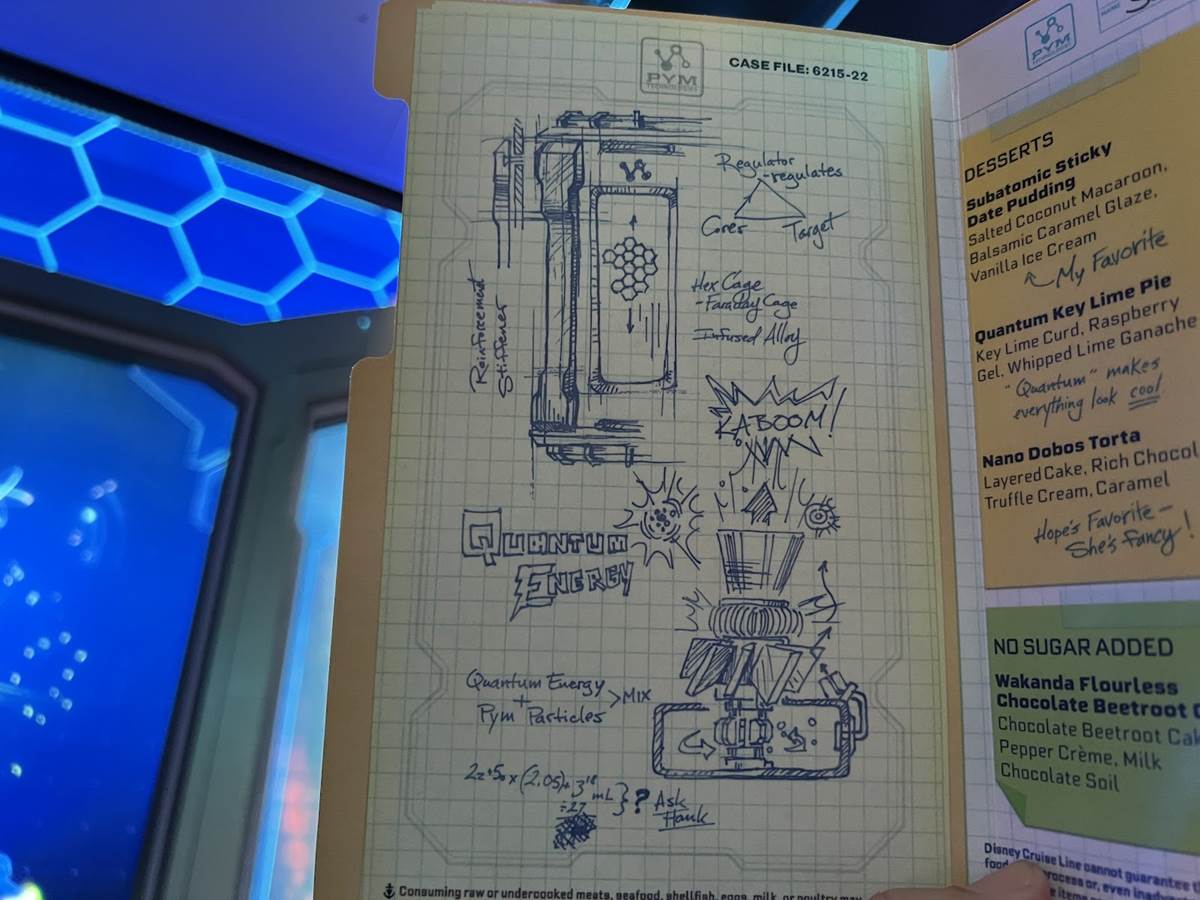 PYM
TECHNOLOGIES
CASE FILE: 6215-22
Regulator
-regulates
Cores
Target
Reinforcement
Stiffener
Hex Cage
-Faraday Cage
Infused Alloy
KABOOM!
QUANTUM
ENERGY
Quantum Energy
+
Pym Particles
> MIX
? Ask
Hank
Consuming raw or undercooked meats, seafood, shellfish, eggs, milk, or poultry may
PYM
TECHNOLOGIES
NAME
DESSERTS
Subatomic Sticky
Date Pudding
Salted Coconut Macaroon,
Balsamic Caramel Glaze,
Vanilla Ice Cream
My Favorite
Quantum Key Lime Pie
Key Lime Curd, Raspberry
Gel, Whipped Lime Ganache
"Quantum" makes
everything look cool
Nano Dobos Torta
Layered Cake, Rich Chocol
Truffle Cream, Caramel
Hope's Favorite –
She's fancy!
NO SUGAR ADDED
Wakanda Flourless
Chocolate Beetroot C
Chocolate Beetroot Cak
Pepper Crème, Milk
Chocolate Soil
Disney Cruise Line cannot guarantee t
food
rocess or, even inadve